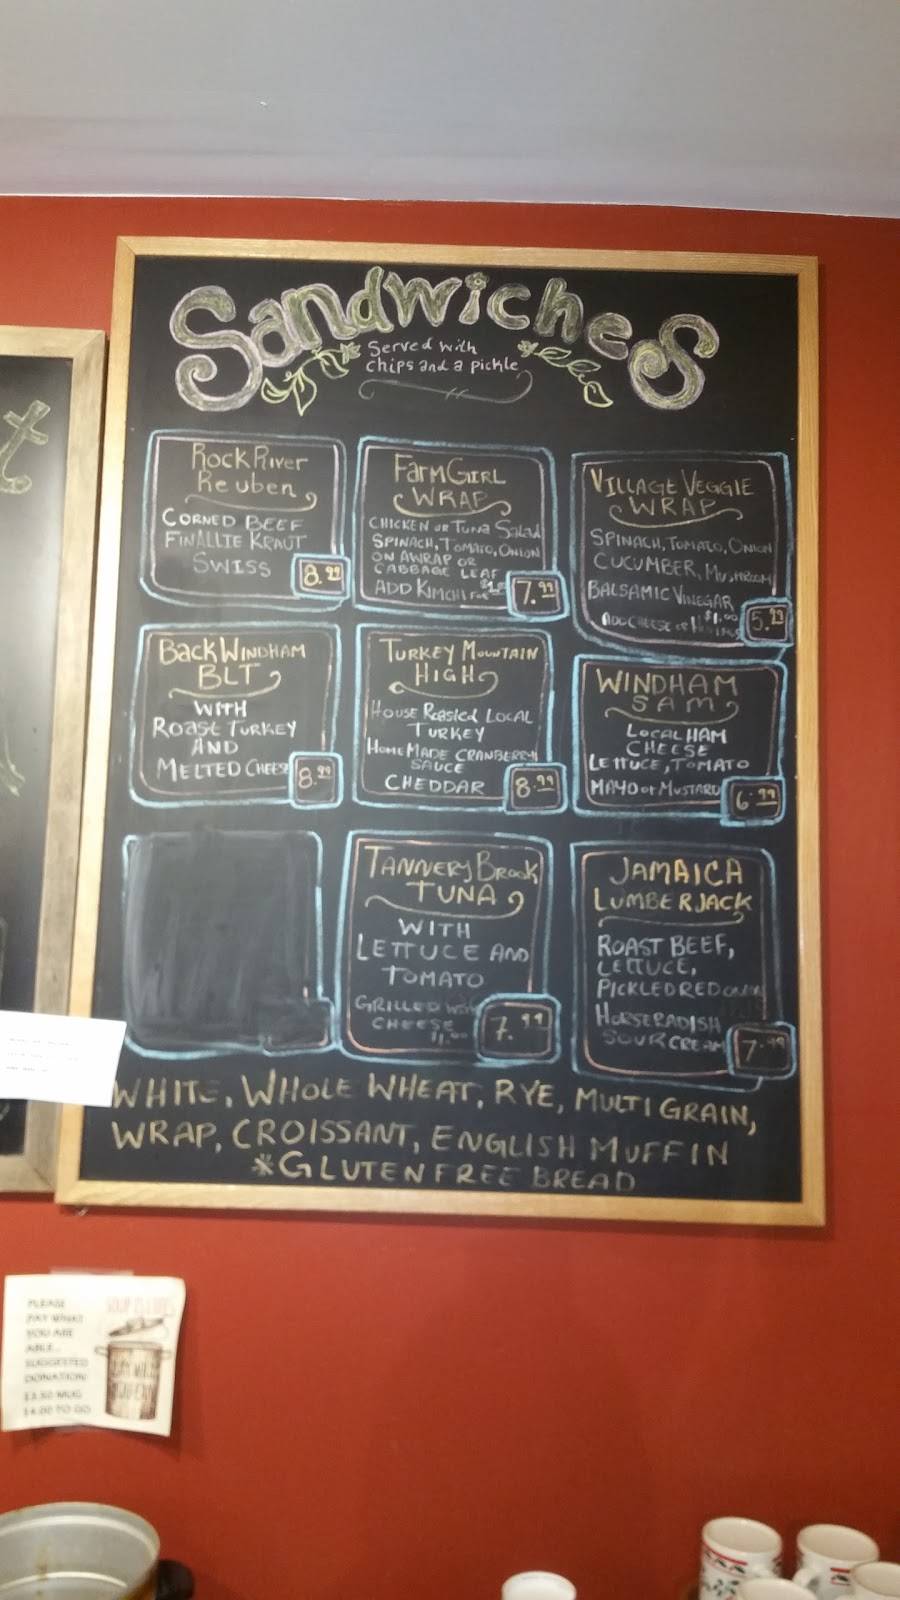 Sandwiches
Served with
chips and a pickle
Rock River
Reuben
Corned Beef
Finallie Kraut
Swiss
8.99
Farm Girl
Wrap
Chicken or Tuna Salad
Spinach, Tomato, Onion
on a wrap or
cabbage leaf
Add Kimchi for
7.99
Village Veggie
Wrap
Spinach, Tomato, Onion
Cucumber, Mushroom
Balsamic Vinegar
Add cheese or $1.00
5.99
Back Windham
BLT
with
Roast Turkey
and
Melted Cheese
8.99
Turkey Mountain
High
House Roasted Local
Turkey
Home Made Cranberry
Sauce
Cheddar
8.99
Windham
Sam
Local Ham
Cheese
Lettuce, Tomato
Mayo or Mustard
6.99
Tannery Brook
Tuna
with
Lettuce and
Tomato
Grilled with
Cheese
$1.00
7.99
Jamaica
Lumberjack
Roast Beef,
Lettuce,
Pickled Red Onion
Horseradish
Sour Cream
7.99
White, Whole Wheat, Rye, Multi Grain,
Wrap, Croissant, English Muffin
*Gluten Free Bread
PLEASE
PAY WHAT
YOU ARE
ABLE...
SUGGESTED
DONATION
$3.50 MUG
$4.00 TO GO